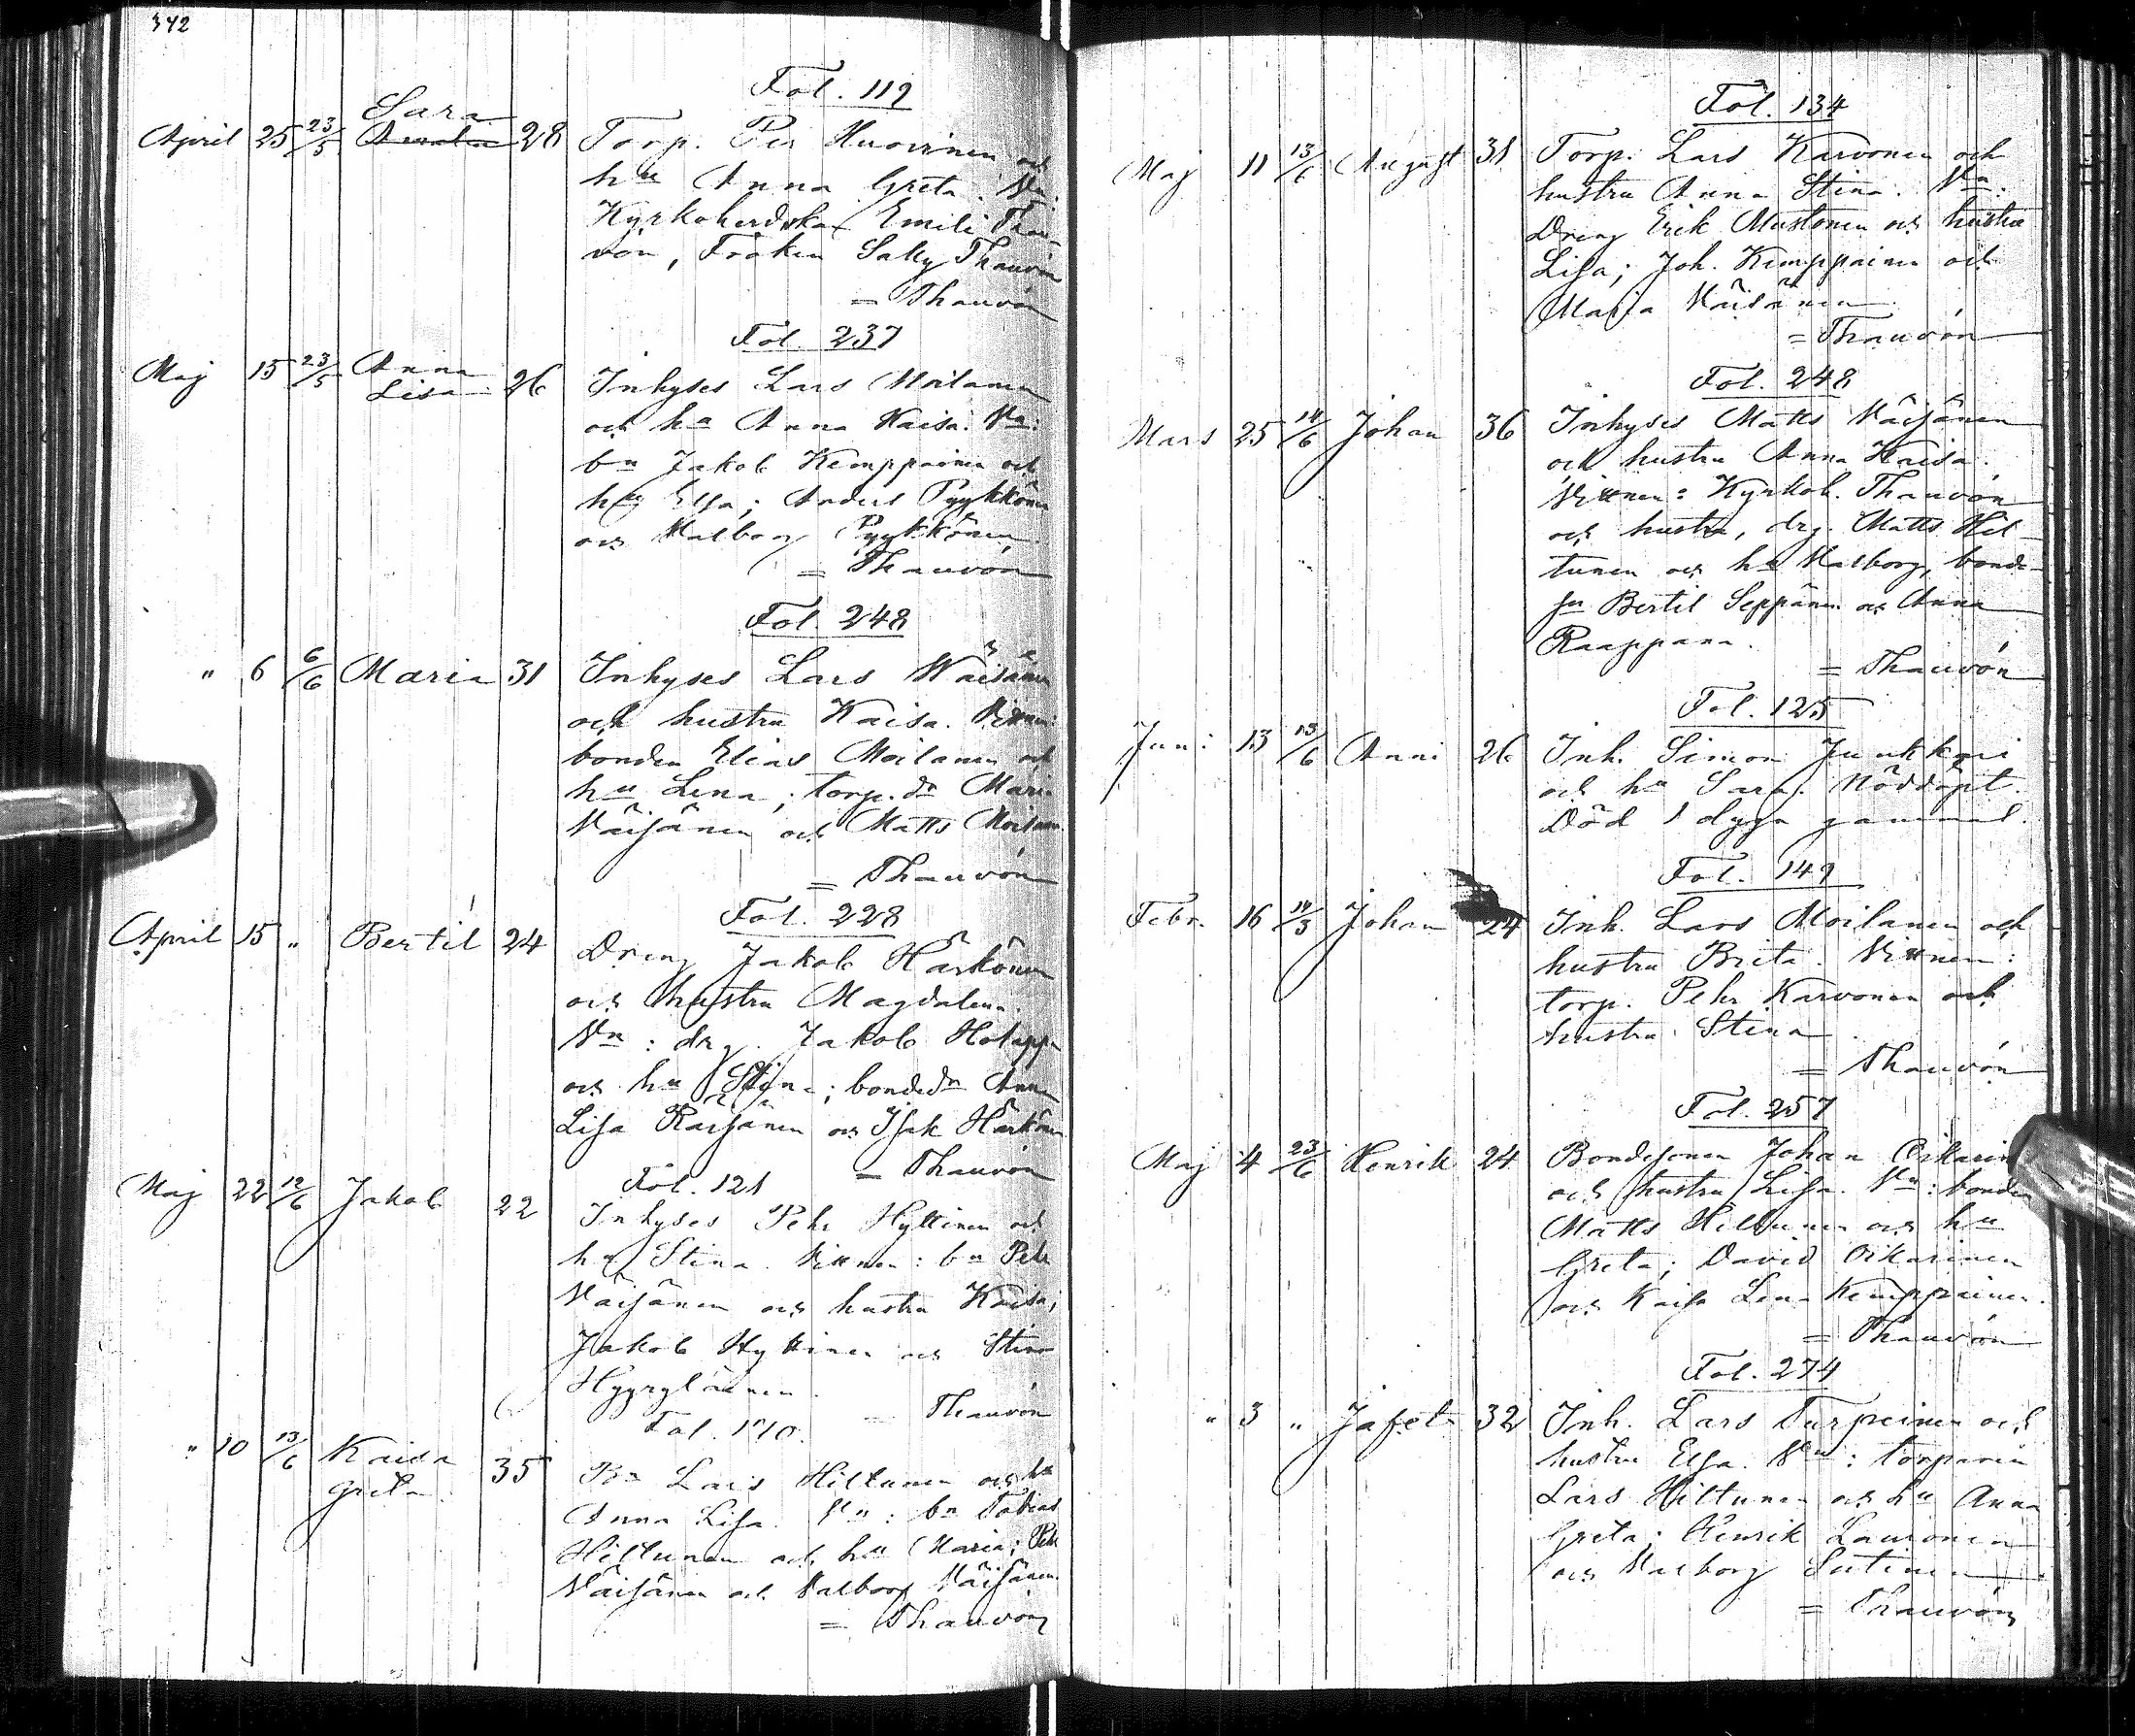 342
Fol. 119
Sara
April 25 23/5 Amalia 28 Torp. Per Huovinen och
hu Anna Greta. Vn:
Kyrkoherdskan Emili Thau-
von, Fröken Sally Thauvón
= Thauvón
Fol. 237
Maj 15 23/5 Anna Lisa 26 Inhyses Lars Moilanen
och hu Anna Kaisa. Vn:
bn Jakob Kemppainen och
hu Elsa; Anders Pyykkönen
och Valborg Pyykkönen.
= Thauvón
Fol. 248
" 6 6/6 Maria 31 Inhyses Lars Väisänen
och hustru Kaisa. Vittnen:
bonden Elias Moilanen och
hu Lena; torp.dn Maria
Väisänen och Matts Moilanen
= Thauvón
Fol. 228
April 15 " Bertil 24 Dreng Jakob Härkönen
och hustru Magdalena.
Vn: drg. Jakob Holappa
och hu Stina; bondedn Anna
Lisa Räisänen och Isak Härkönen
= Thauvón
Fol. 121
Maj 22 12/6 Jakob 22 Inhyses Pehr Hyttinen och
hu Stina. Vittnen: bn Pehr
Väisänen och hustru Kaisa;
Jakob Hyttinen och Stina
Hyyryläinen.
= Thauvón
Fol. 170.
" 10 13/6 Kaisa Greta 35 Bn Lars Hiltunen och hu
Anna Lisa. Vn: bn Tobias
Hiltunen och hu Maria; Pehr
Väisänen och Valborg Väisänen.
= Thauvón
Fol. 134
Maj 11 13/6 August 31 Torp. Lars Karvonen och
hustru Anna Stina. Vn:
Dreng Erik Mustonen och hustru
Lisa; Joh. Kemppainen och
Maria Väisänen
= Thauvón
Fol. 248
Mars 25 14/6 Johan 36 Inhyses Matts Väisänen
och hustru Anna Kaisa.
Vittnen: Kyrkoh. Thauvón
och hustru, drg. Matts Hil-
tunen och hu Valborg, bonde-
sn Bertil Seppänen och Anna
Raappana.
= Thauvón
Fol. 125
Juni 13 13/6 Anni 26 Inh. Simon Junkkari
och hu Sara. Nöddöpt.
Död 1 dygn gammal.
Fol. 149
Febr. 16 14/3 Johan 24 Inh. Lars Moilanen och
hustru Brita. Vittnen:
torp. Pehr Karvonen och
hustru Stina
= Thauvón
Fol. 257
Maj 4 23/6 Henrik 24 Bondesonen Johan Oikarin
och hustru Lisa. Vn: bonden
Matts Hiltunen och hu
Greta; David Oikarinen
och Kaisa Lena Kemppainen.
= Thauvón
Fol. 274
" 3 " Jafet 32 Inh. Lars Turpeinen och
hustru Elsa. Vn: torparen
Lars Hiltunen och hu Anna
Greta; Henrik Lauronen
och Valborg Sutinen
= Thauvón